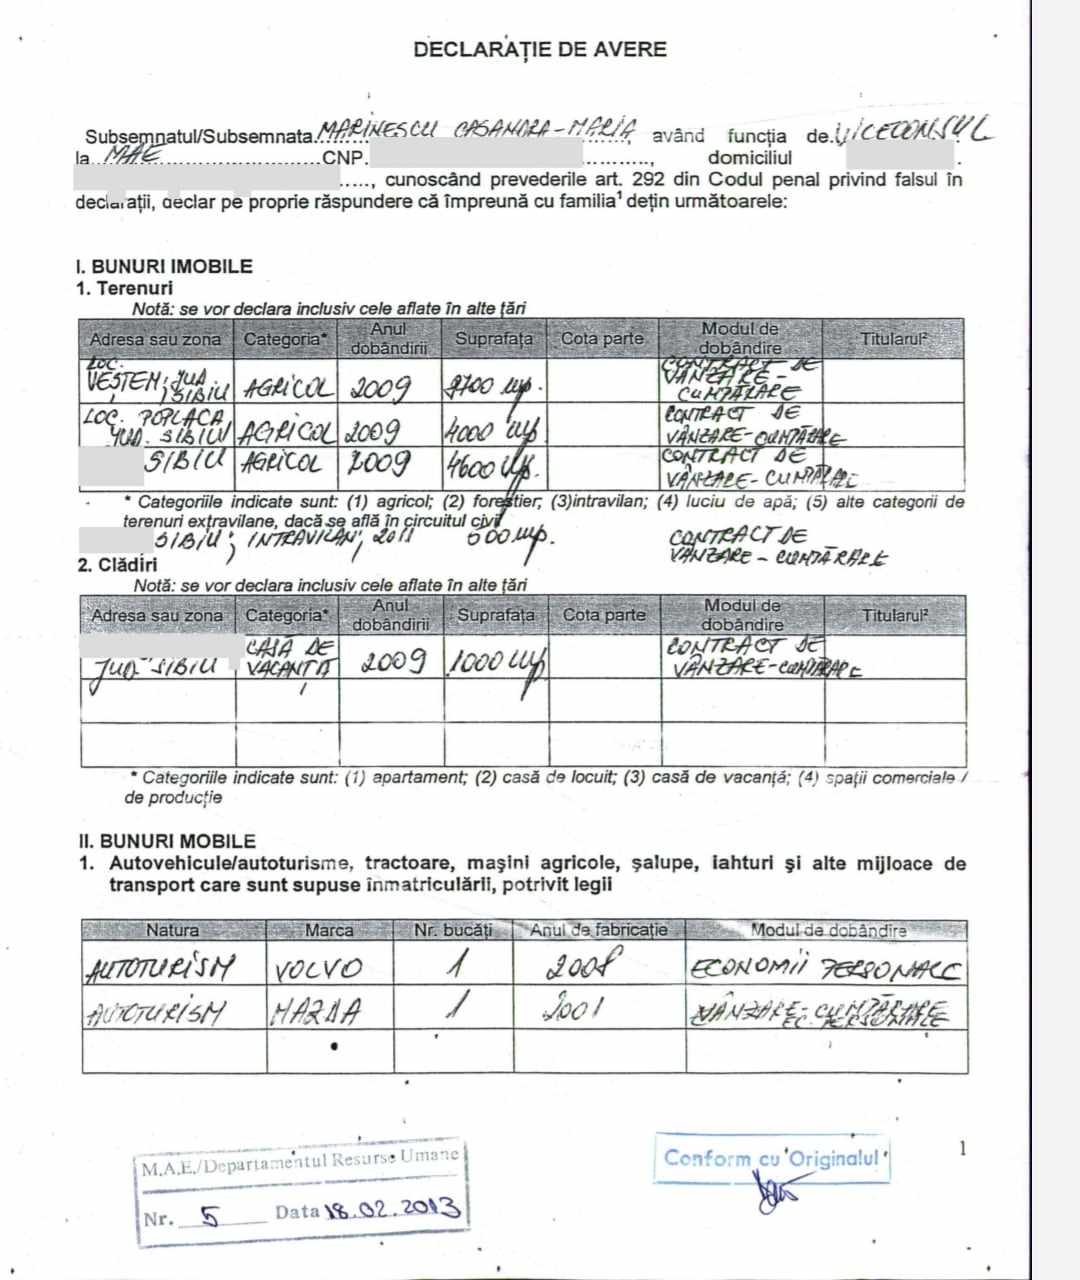 DECLARAȚIE DE AVERE
Subsemnatul/Subsemnata MARINESCU CASANDRA-MARIA, având funcția de VICECONSUL
la MAE CNP. , domiciliul
, cunoscând prevederile art. 292 din Codul penal privind falsul în
declarații, declar pe proprie răspundere că împreună cu familia¹ dețin următoarele:
I. BUNURI IMOBILE
1. Terenuri
Notă: se vor declara inclusiv cele aflate în alte țări
Adresa sau zona Categoria* Anul dobândirii Suprafața Cota parte Modul de dobândire Titularul²
LOC. VEȘTEM, JUD. SIBIU AGRICOL 2009 mp. CONTRACT DE VÂNZARE-CUMPĂRARE
LOC. POPLACA JUD. SIBIU AGRICOL 2009 4000 mp CONTRACT DE VÂNZARE-CUMPĂRARE
SIBIU AGRICOL 2009 4600 mp. CONTRACT DE VÂNZARE-CUMPĂRARE
* Categoriile indicate sunt: (1) agricol; (2) forestier; (3)intravilan; (4) luciu de apă; (5) alte categorii de
terenuri extravilane, dacă se află în circuitul civil
SIBIU; INTRAVILAN; 2011 500 mp. CONTRACT DE VÂNZARE-CUMPĂRARE
2. Clădiri
Notă: se vor declara inclusiv cele aflate în alte țări
Adresa sau zona Categoria* Anul dobândirii Suprafața Cota parte Modul de dobândire Titularul²
JUD. SIBIU CASĂ DE VACANȚĂ 2009 1000 mp CONTRACT DE VÂNZARE-CUMPĂRARE
* Categoriile indicate sunt: (1) apartament; (2) casă de locuit; (3) casă de vacanță; (4) spații comerciale /
de producție
II. BUNURI MOBILE
1. Autovehicule/autoturisme, tractoare, mașini agricole, șalupe, iahturi și alte mijloace de
transport care sunt supuse înmatriculării, potrivit legii
Natura Marca Nr. bucăți Anul de fabricație Modul de dobândire
AUTOTURISM VOLVO 1 2008 ECONOMII PERSONALE
AUTOTURISM MAZDA 1 2001 VÂNZARE-CUMPĂRARE EC. PERSONALE
1
M.A.E./Departamentul Resurse Umane
Nr. 5 Data 18.02.2013
Conform cu Originalul